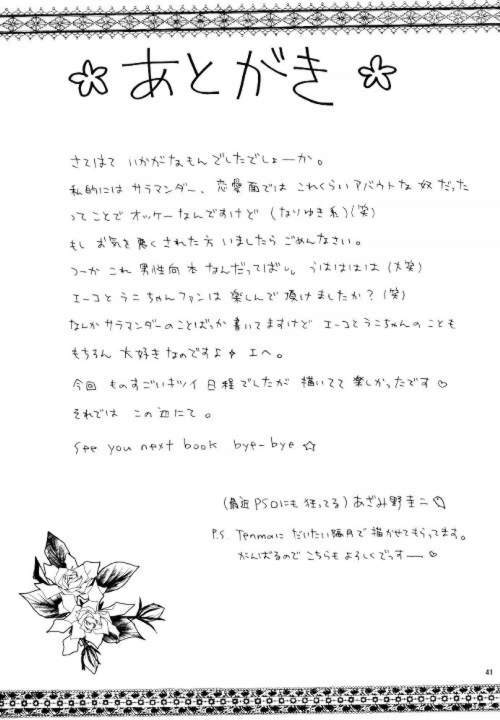 あとがき
さてはて いかがなもんでしたでしょーか。
私的には サラマンダー、恋愛面では これくらい アバウトな 奴だった
ってことで オッケーなんですけど (なりゆき系)(笑)
もし お気を悪くされた方 いましたら ごめんなさい。
つーか これ 男性向本 なんだってばし うはははは (大笑)
エーコとラニちゃんファンは 楽しんで頂けましたか?(笑)
なんかサラマンダーのことばっか書いてますけど エーコとラニちゃんのことも
もちろん 大好きなのですよ エヘ。
今回 ものすごいキツイ日程でしたが 描いてて 楽しかったです♡
それでは この辺にて。
See you next book bye-bye ☆
(最近PSOにも狂ってる) あざみ野圭二
P.S Tenmaに だいたい隔月で描かせてもらってます。
がんばるので こちらも よろしくでっすー♡
41